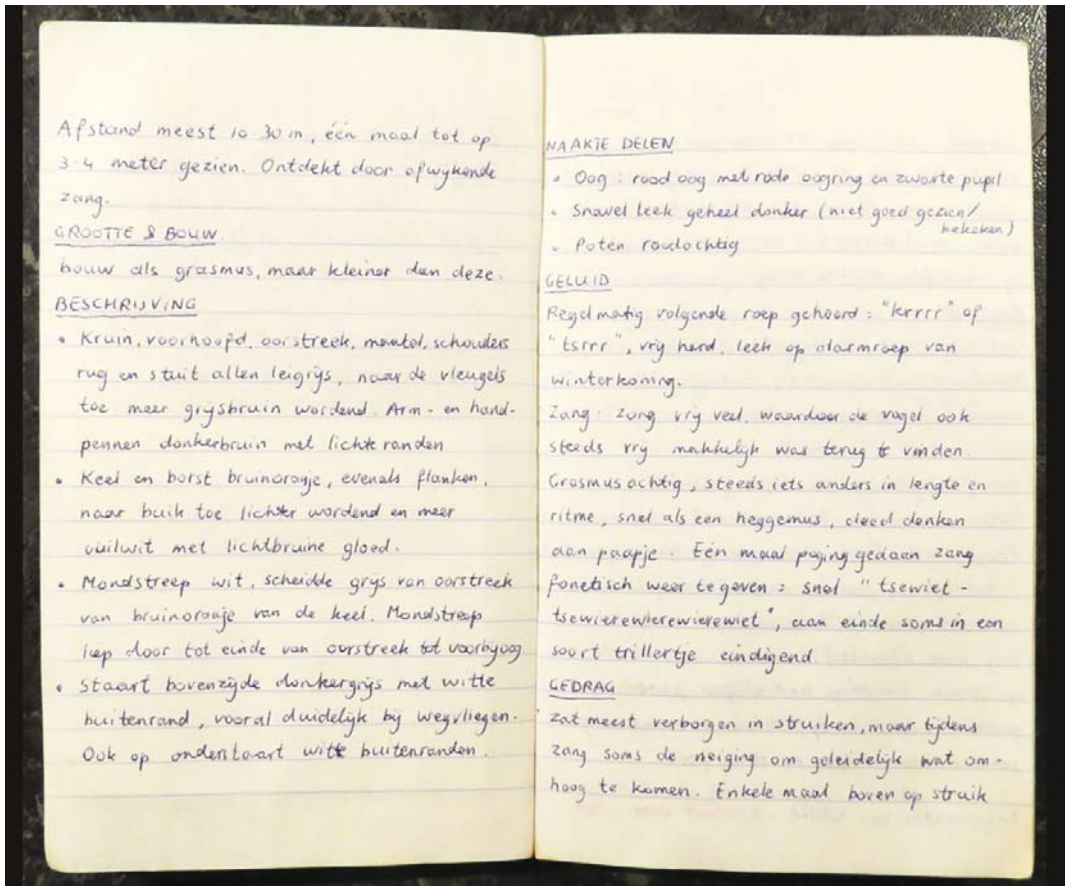 Afstand meest 10-30 m, één maal tot op
3-4 meter gezien. Ontdekt door afwijkende
zang.
GROOTTE & BOUW
bouw als grasmus, maar kleiner dan deze.
BESCHRIJVING
• Kruin, voorhoofd, oorstreek, mantel, schouders
rug en stuit allen leigrijs, naar de vleugels
toe meer grijsbruin wordend. Arm- en hand-
pennen donkerbruin met lichte randen
• Keel en borst bruinoranje, evenals flanken,
naar buik toe lichter wordend en meer
vuilwit met lichtbruine gloed.
• Mondstreep wit, scheidde grijs van oorstreek
van bruinoranje van de keel. Mondstreep
liep door tot einde van oorstreek tot voorbij oog
• Staart bovenzijde donkergrijs met witte
buitenrand, vooral duidelijk bij wegvliegen.
Ook op onderstaart witte buitenranden.
NAAKTE DELEN
• Oog: rood oog met rode oogring en zwarte pupil
• Snavel leek geheel donker (niet goed gezien/
bekeken)
• Poten roodachtig
GELUID
Regelmatig volgende roep gehoord: "krrrr" of
"tsrrr", vrij hard, leek op alarmroep van
winterkoning.
Zang: zong vrij veel, waardoor de vogel ook
steeds vrij makkelijk was terug te vinden.
Grasmusachtig, steeds iets anders in lengte en
ritme, snel als een heggemus, deed denken
aan paapje. Eén maal poging gedaan zang
fonetisch weer te geven: snel "tsewiet-
tsewierewierewierewiet", aan einde soms in een
soort trillertje eindigend.
GEDRAG
zat meest verborgen in struiken, maar tijdens
zang soms de neiging om geleidelijk wat om-
hoog te komen. Enkele maal boven op struik